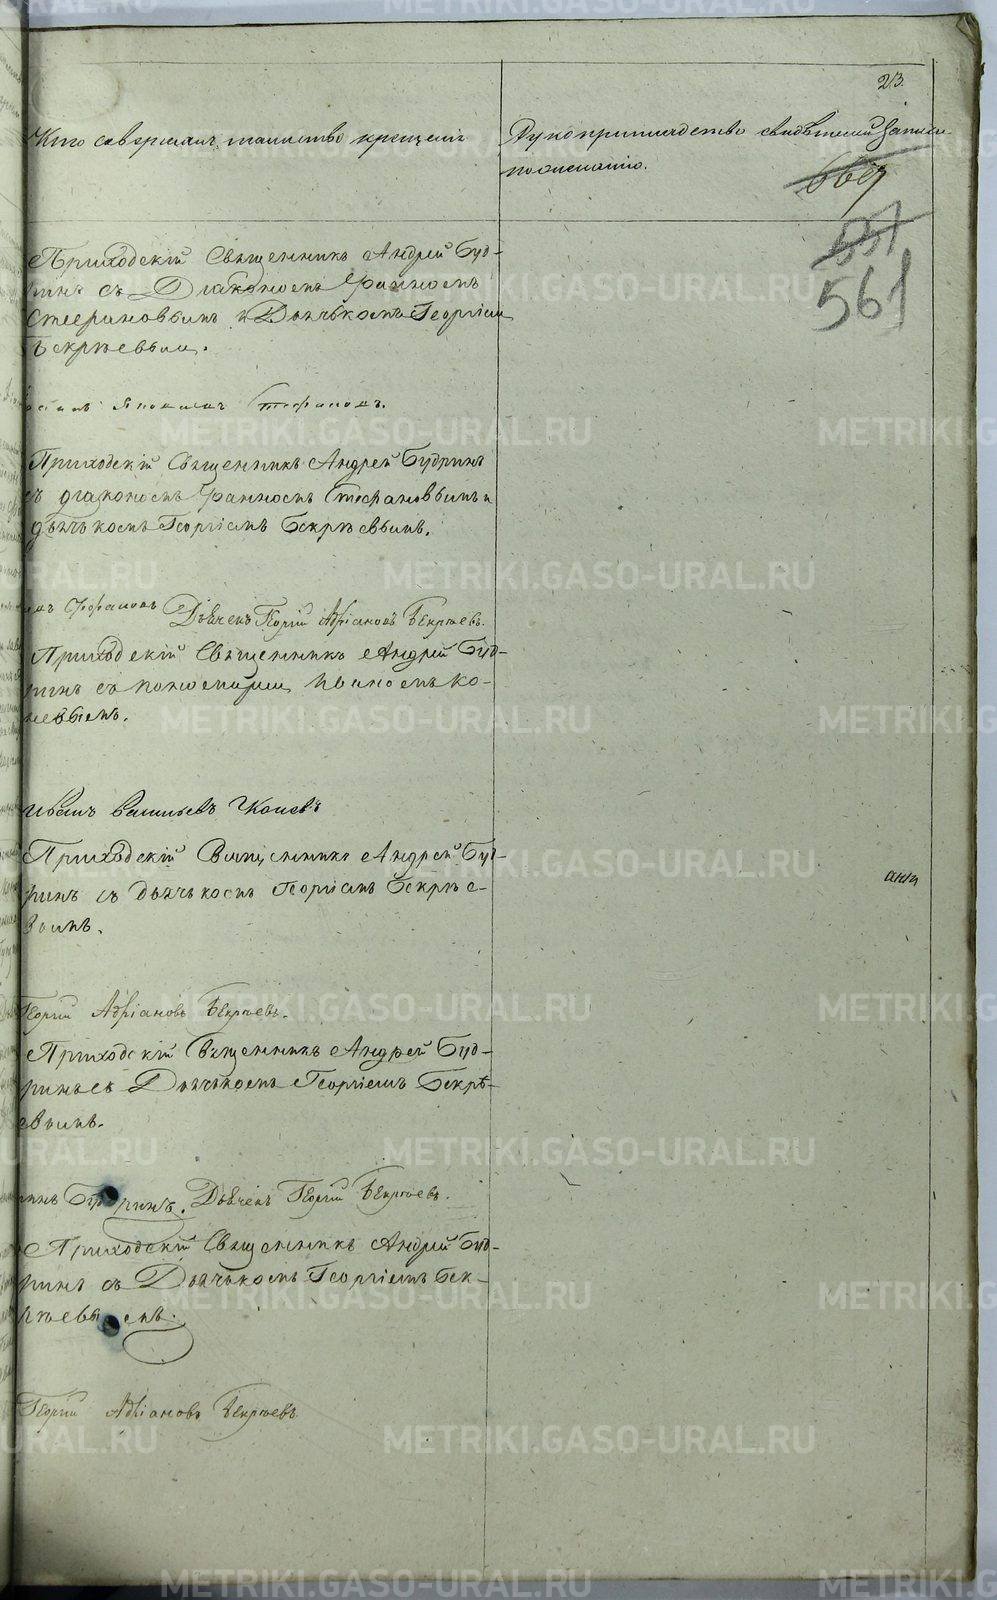 23.
Кто совершалъ таинство крещенія
Рукоприкладство свидѣтелей записи
по желанію.
669
537
561
Приходскій Священникъ Андрей Буд-
ринъ съ Діакономъ
Стефановымъ и Дьячькомъ Георгіем
Бекряевым.
Стефановъ.
Приходскій Священникъ Андрей Будринъ
съ діакономъ Стефановымъ и
дьячькомъ Георгіемъ Бекряевымъ.
Дьячекъ Георгій Адріановъ Бекряевъ.
Приходскій Священникъ Андрей Буд-
ринъ съ пономаремъ Иваномъ Ко-
невымъ.
Иванъ Васильевъ Коневъ
Приходскій Священникъ Андрей Буд-
ринъ съ дьячькомъ Георгіемъ Бекряе-
вымъ.
Георгій Адріановъ Бекряевъ.
Приходскій Священникъ Андрей Буд-
ринъ съ Дьячькомъ Георгіемъ Бекрѣ-
евымъ.
Будринъ. Дьячекъ Георгій Бекряевъ.
Приходскій Священникъ Андрей Буд-
ринъ съ Дьячькомъ Георгіемъ Бек-
ряевымъ.
Георгій Адріановъ Бекряевъ
METRIKI.GASO-URAL.RU